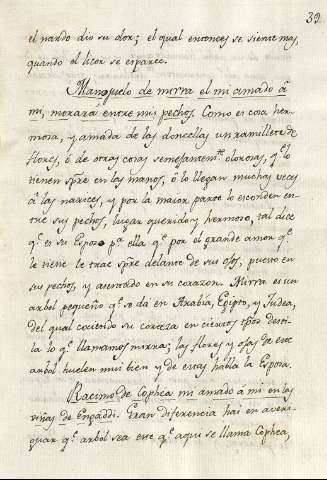 39
el nardo dio su olor; el qual entonces se siente mas,
quando el licor se esparce.
Manojuelo de mirra el mi amado â
mi, morara entre mis pechos. Como es cosa her-
mosa, y amada de las doncellas un ramillete de
flores, ô de otras cosas semejantemte. olorosas, qe. lo
tienen spre en las manos, ô lo llegan muchas veces
â las narices, y por la maior parte lo esconden en-
tre sus pechos, lugar querido y hermoso, tal dice
qe. es su Esposo pa. ella qe. por el grande amor qe.
le tiene le trae spre delante de sus ojos, puesto en
sus pechos, y asentado en su corazon. Mirra es un
arbol pequeño qe. se da en Arabia, Egipto, y Judea,
del qual hiriendo su corteza en ciertos tpos desti-
la lo qe. llamamos mirra; las flores y ojas de este
arbol huelen mui bien y de estas habla la Esposa.
Racimo de Cophèa mi amado â mi en las
viñas de Engaddi. Gran diferencia hai en averi-
guar qe. arbol sea este qe. aqui se llama Cophea,